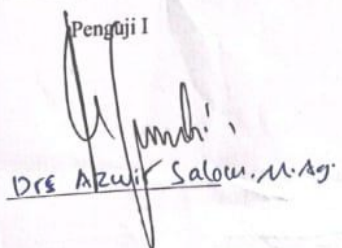 Penguji I
Drs Azwir Salam. M.Ag.